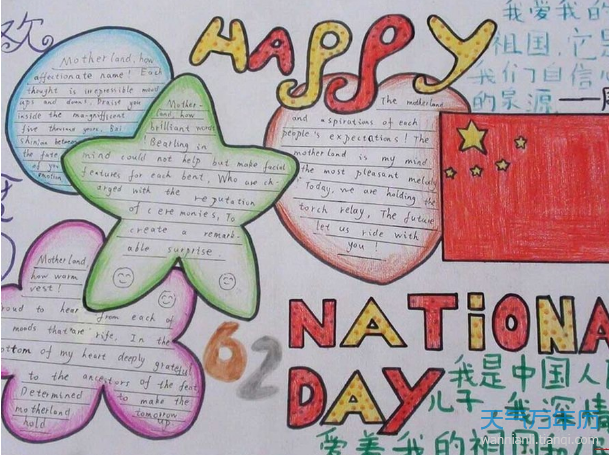 HAPPY
我爱我的
祖国,它是
我们自信心
的泉源
欢
Motherland, how
affectionate name! Each
thought is irrepressible mood
ups and downs. Praise you
inside the magnificent
five thousand years.
Mother-
land, how
brilliant word!
Bearling in
mind could not help but make facial
features for each bent. Who are ch-
arged with the reputation
of ceremonies. To
create a remark-
able surprise.
The motherland
and aspirations of each
people's expectations! The
motherland is my mind
the most pleasant melody
Today, we are holding the
torch relay. The future
let us ride with
you!
Motherland,
how warm
vest!
roud to hear from each of
moods that are rife. In the
ottom of my heart deeply grateful
to the ancestors of the feat
Determined to make the
motherland tomorrow
hold up
62
NATIONA
DAY
我是中国人民
儿子 我深情
爱着我的祖国和人民
天气万年历
wannianli.tianqi.com